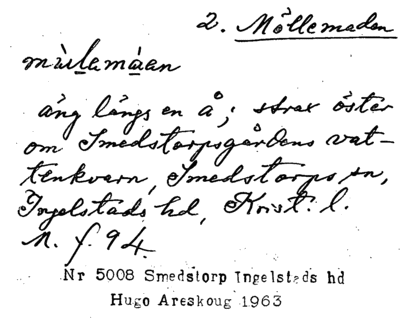 2. Möllemaden
mùlamàan
äng längs en å; strax öster
om Smedstorpsgårdens vat-
tenkvarn, Smedstorps sn,
Ingelstads hd, Krist. l.
M. f. 94.
Nr 5008 Smedstorp Ingelstads hd
Hugo Areskoug 1963